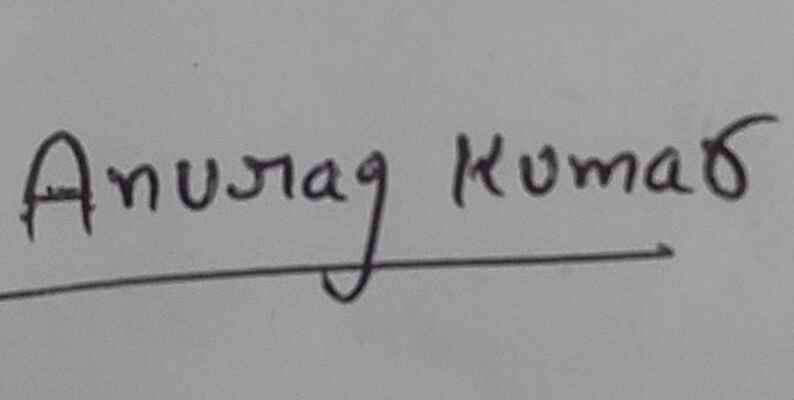 Anurag Kumar